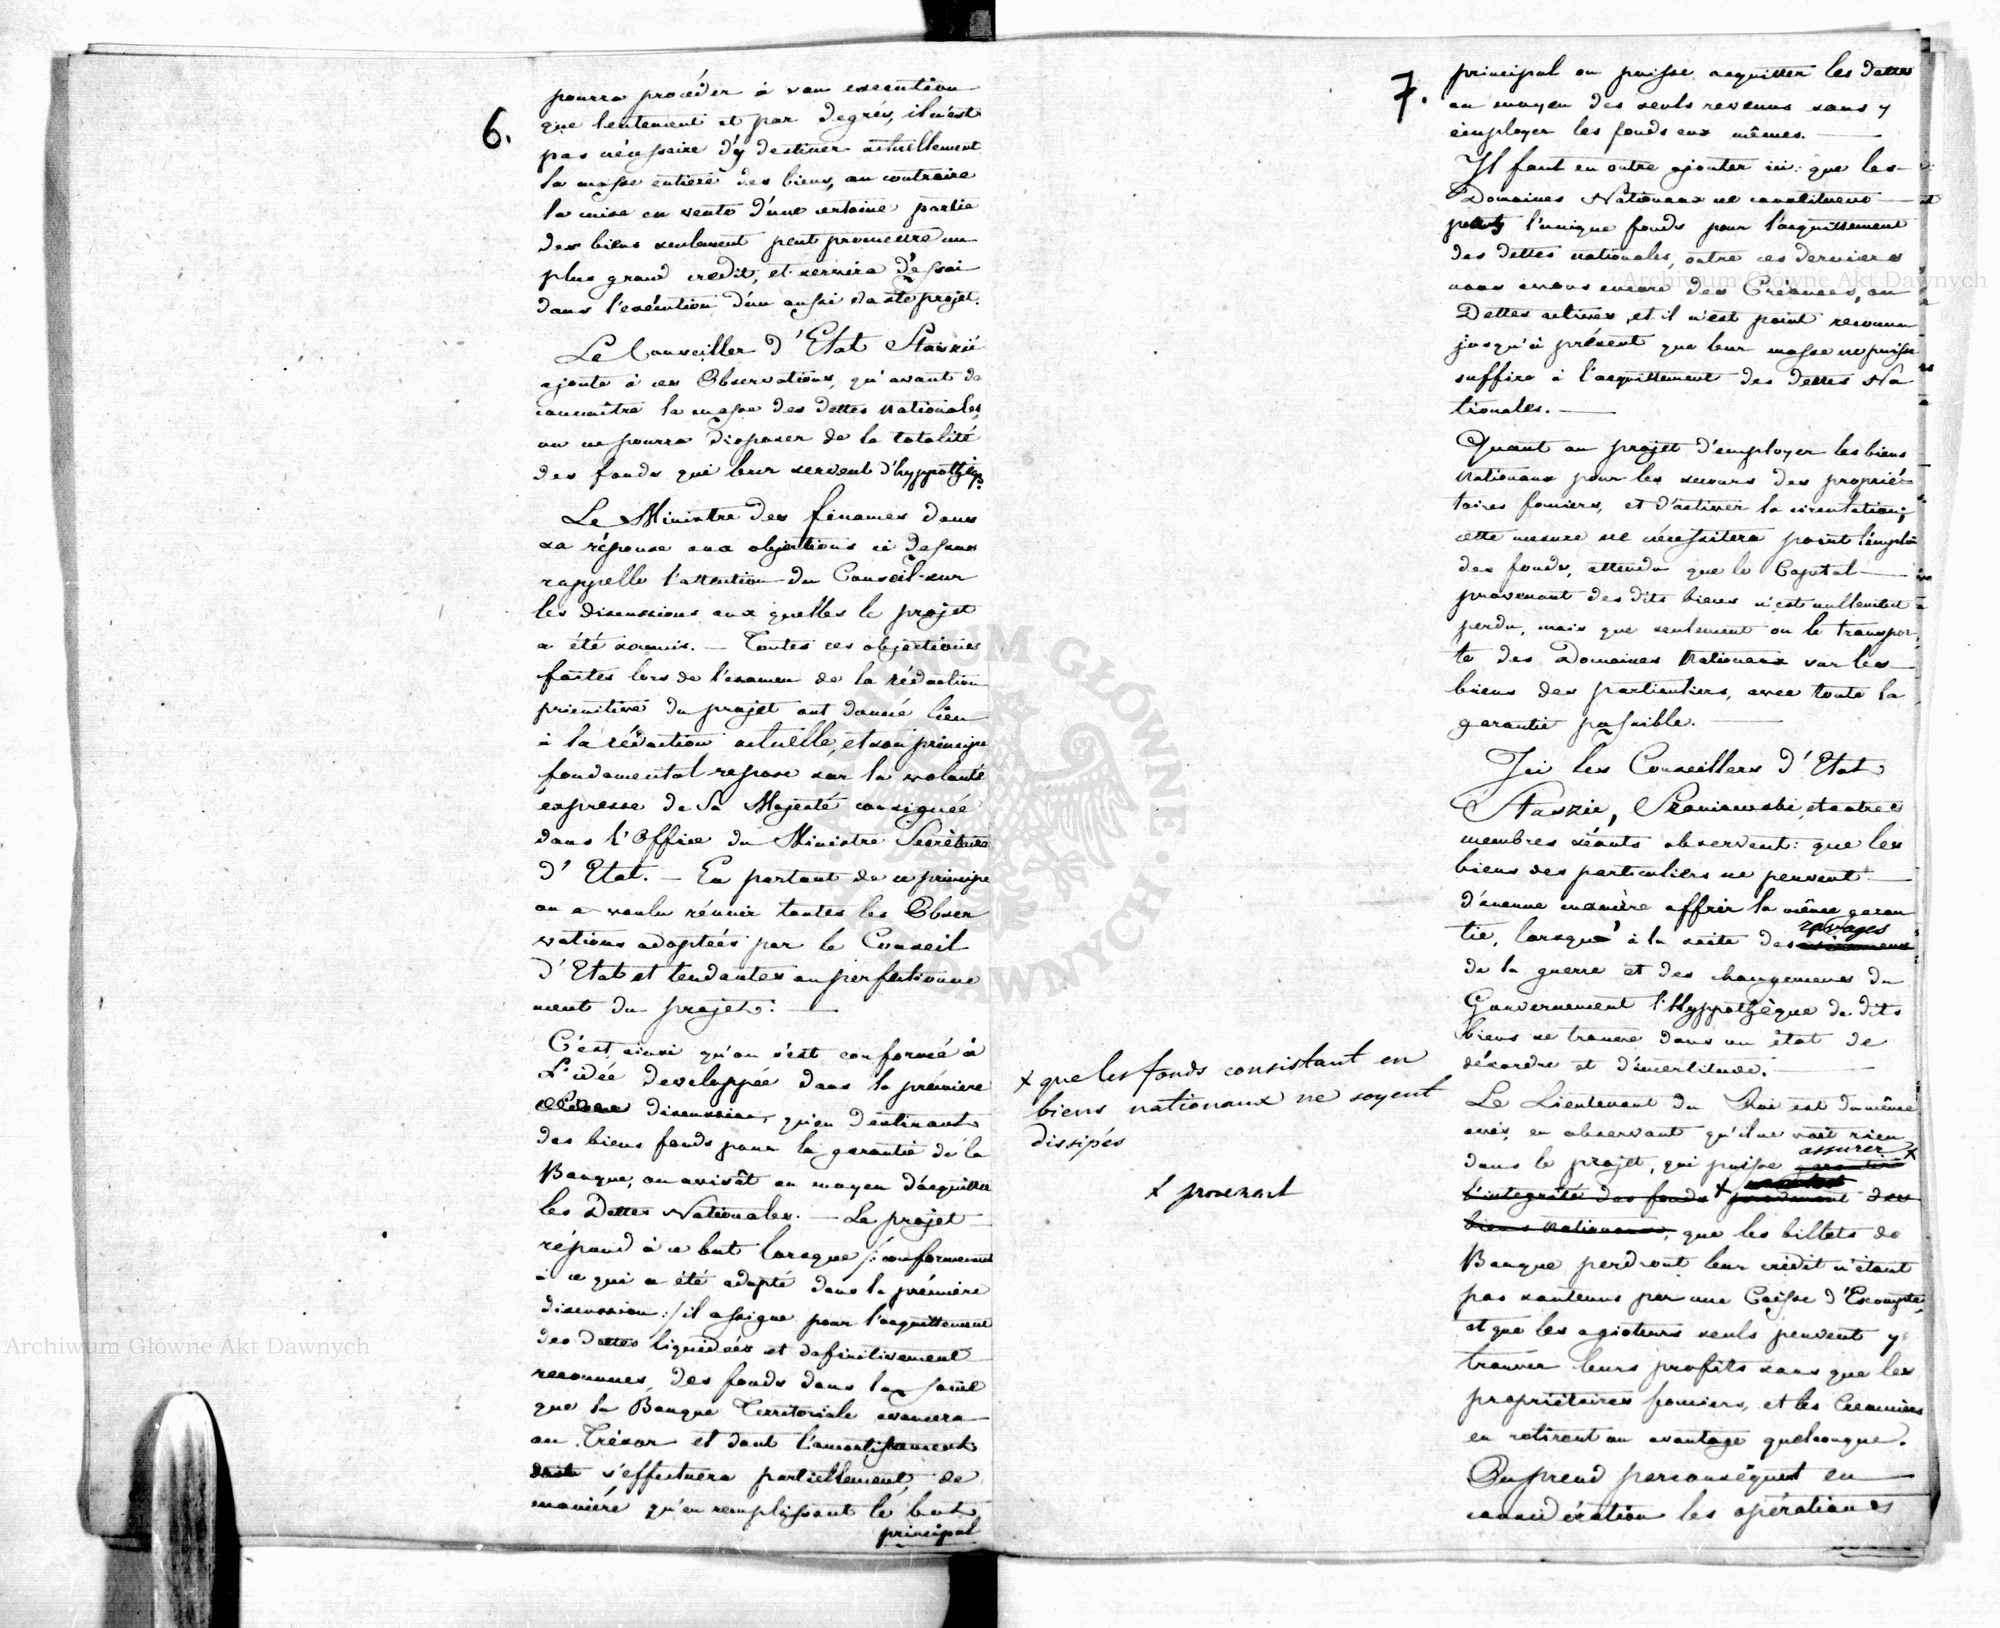 6.
pourra procéder à son execution
que lentement et par degrés, il n'est
pas nécessaire d'y destiner actuellement
la masse entiere des biens, au contraire
la mise en vente d'une certaine partie
des biens seulement peut promettre un
plus grand credit, et servira d'essai
dans l'exécution d'un aussi vaste projet.
Le Conseiller d'Etat Staszic
ajoute à ces Observations, qu'avant de
connaitre la masse des dettes nationales
on ne pourra disposer de la totalité
des fonds qui leur servent d'hyppothèq:
Le Ministre des finances dans
sa réponse aux objections ci dessus
rappelle l'attention du Conseil sur
les discussions aux quelles le projet
a été soumis. — Toutes ces objections
faites lors de l'examen de la rédaction
primitive du projet ont donné lieu
à la rédaction actuelle, et son principe
fondamental repose sur la volonté
expresse de Sa Majesté consignée
dans l'Office du Ministre Secrétaire
d'Etat. — En partant de ce principe
on a voulu réunir toutes les Obser
vations adoptées par le Conseil
d'Etat et tendantes au perfectionne
ment du projet: —
C'est ainsi qu'on s'est conformé à
L'idée developpée dans la prémiere
discussion, qu'en destinant
des biens fonds pour la garantie de la
Banque, on avisât au moyen d'acquitter
les Dettes Nationales. — Le projet
répond à ce but lorsque /: conformement
à ce qui a été adopté dans la prémière
discussion :/ il assigne pour l'acquittement
des dettes liquidées et definitivement
reconnues, des fonds dans la some
que la Banque Territoriale avancera
au Trésor et dont l'amortissement
s'effectuera partiellement, de
manière qu'en remplissant le but
principal
7.
principal on puisse acquitter les dettes
au moyen des seuls revenus sans y
employer les fonds eux mêmes. —
Il faut en outre ajouter ici: que les
Domaines Nationaux ne constituent
point l'unique fonds pour l'acquittement
des dettes nationales, outre ces derniers
nous avons encore des Créances, ou
Dettes actives, et il n'est point reconnu
jusqu'à présent que leur masse ne puisse
suffire à l'acquittement des dettes Na
tionales. —
Quant au projet d'employer les biens
Nationaux pour les secours des proprié-
taires fonciers, et d'activer la circulation;
cette mesure ne nécessitera point l'emploi
des fonds, attendu que le Capital —
provenant des dits biens n'est nullement
perdu, mais que seulement on le transpor
te des Domaines Nationaux sur les
biens des particuliers, avec toute la
garantie possible. —
Ici les Conseillers d'Etat
Staszic, Szaniawski, et autres
membres séants observent: que les
biens des particuliers ne peuvent
d'aucune manière offrir la même garan
tie, lorsque à la suite des ravages
de la guerre et des changements du
Gouvernement l'Hyppothèque de dits
biens se trouve dans un état de
désordre et d'incertitude. —
Le Lieutenant du Roi est du même
avis, en observant qu'il ne voit rien
dans le projet, qui puisse assurer x
l'intégrité des fonds x des
biens nationaux, que les billets de
Banque perdront leur crédit n'étant
pas soutenus par une Caisse d'Escompte,
et que les agioteurs seuls peuvent y
trouver leurs profits sans que les
propriétaires fonciers, et les Créanciers
en retirent un avantage quelconque.
On prend par conséquent en
considération les opérations
x que les fonds consistant en
biens nationaux ne soyent
dissipés
x provenant
Archiwum Główne Akt Dawnych
Archiwum Główne Akt Dawnych
ARCHIWUM GŁÓWNE AKT DAWNYCH